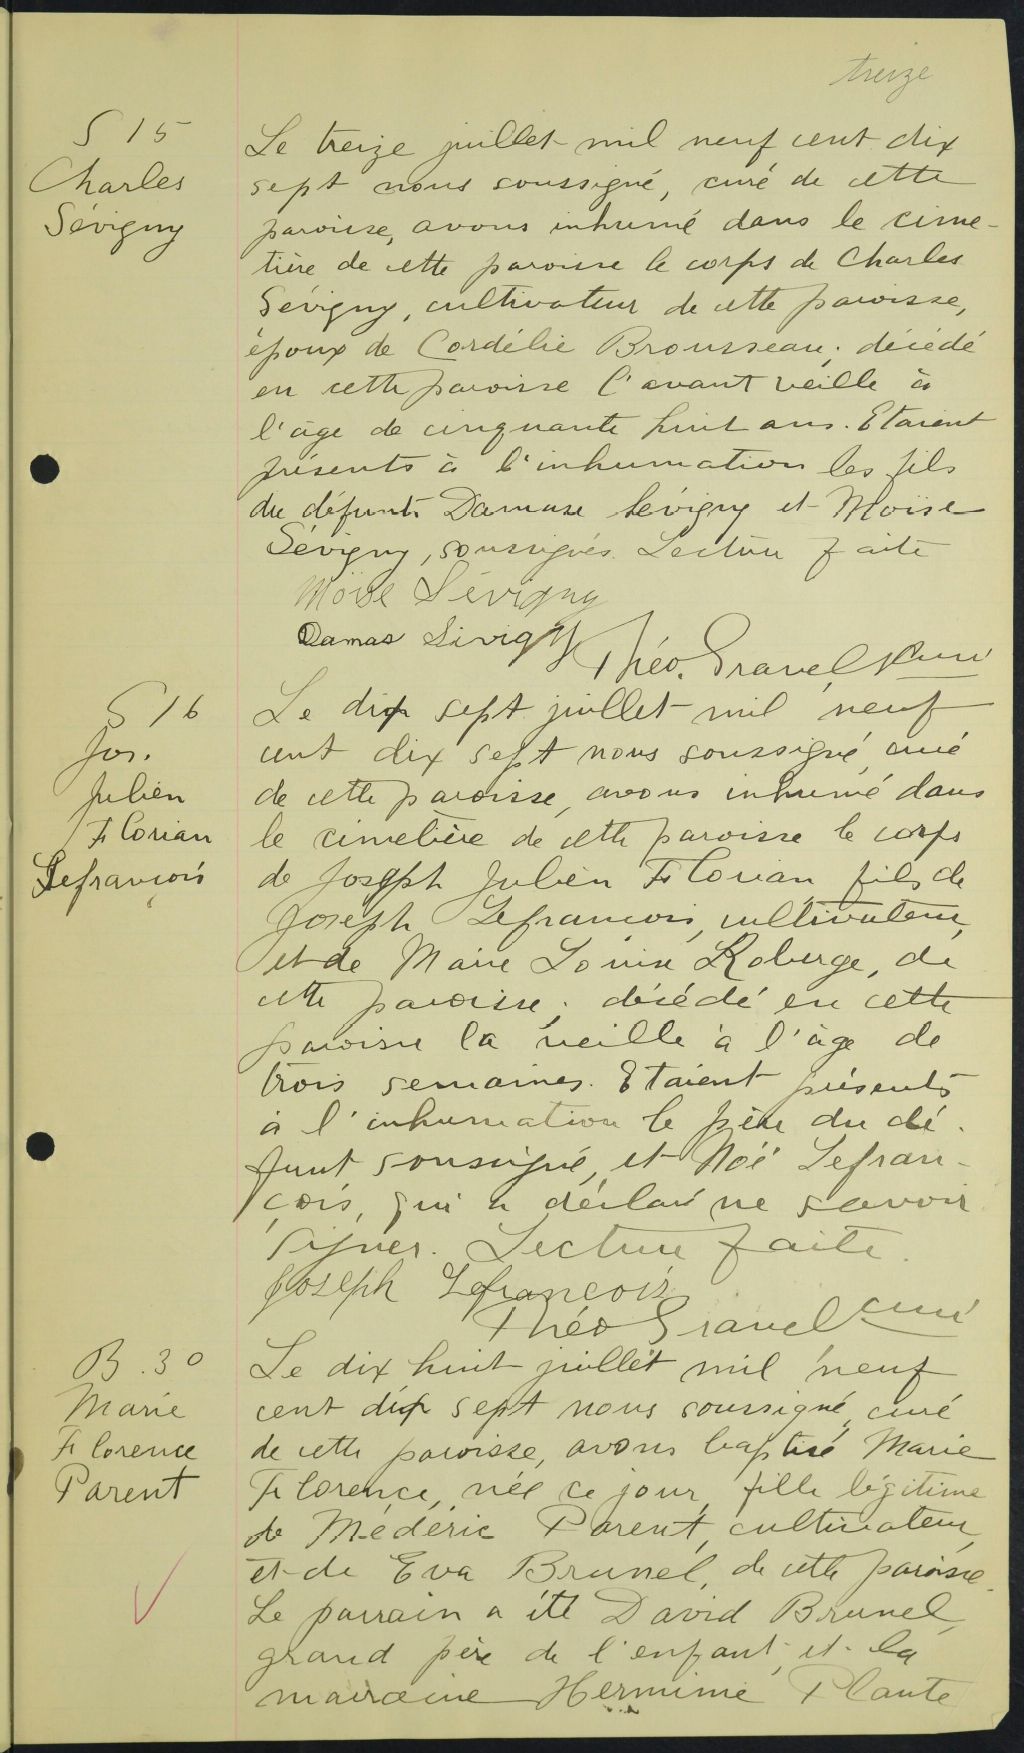 treize
S 15
Charles
Sévigny
Le treize juillet mil neuf cent dix
sept nous soussigné, curé de cette
paroisse, avons inhumé dans le cime-
tière de cette paroisse le corps de Charles
Sévigny, cultivateur de cette paroisse,
époux de Cordélie Brousseau, décédé
en cette paroisse l'avant veille à
l'âge de cinquante huit ans. Etaient
présents à l'inhumation les fils
du défunt Damase Sévigny et Moïse
Sévigny, soussignés. Lecture faite
Moïse Sévigny
Damas Sivigny
Théo. Gravel, curé
S 16
Jos.
Julien
Florian
Lefrançois
Le dix sept juillet mil neuf
cent dix sept nous soussigné, curé
de cette paroisse, avons inhumé dans
le cimetière de cette paroisse le corps
de Joseph Julien Florian, fils de
Joseph Lefrancois, cultivateur,
et de Marie Louise Roberge, de
cette paroisse, décédé en cette
paroisse la veille à l'âge de
trois semaines. Etaient présents
à l'inhumation le père du dé-
funt soussigné, et Noé Lefran-
çois, qui a déclaré ne savoir
signer. Lecture faite.
Joseph Lefrançois
Théo Gravel curé
B. 30
Marie
Florence
Parent
Le dix huit juillet mil neuf
cent dix sept nous soussigné, curé
de cette paroisse, avons baptisé Marie
Florence, née ce jour, fille légitime
de Médéric Parent, cultivateur,
et de Eva Brunel, de cette paroisse.
Le parrain a été David Brunel,
grand père de l'enfant, et la
marraine Hermine Plante